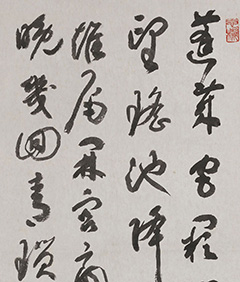 蓬萊宮闕
望瑤池降
雉尾開宮扇
晚幾回青瑣